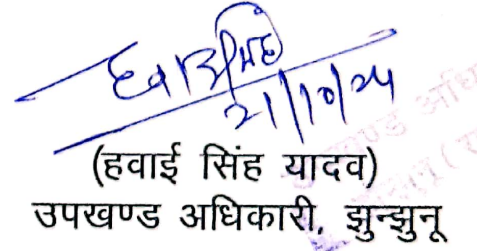 21/10/24
(हवाई सिंह यादव)
उपखण्ड अधिकारी, झुन्झुनू